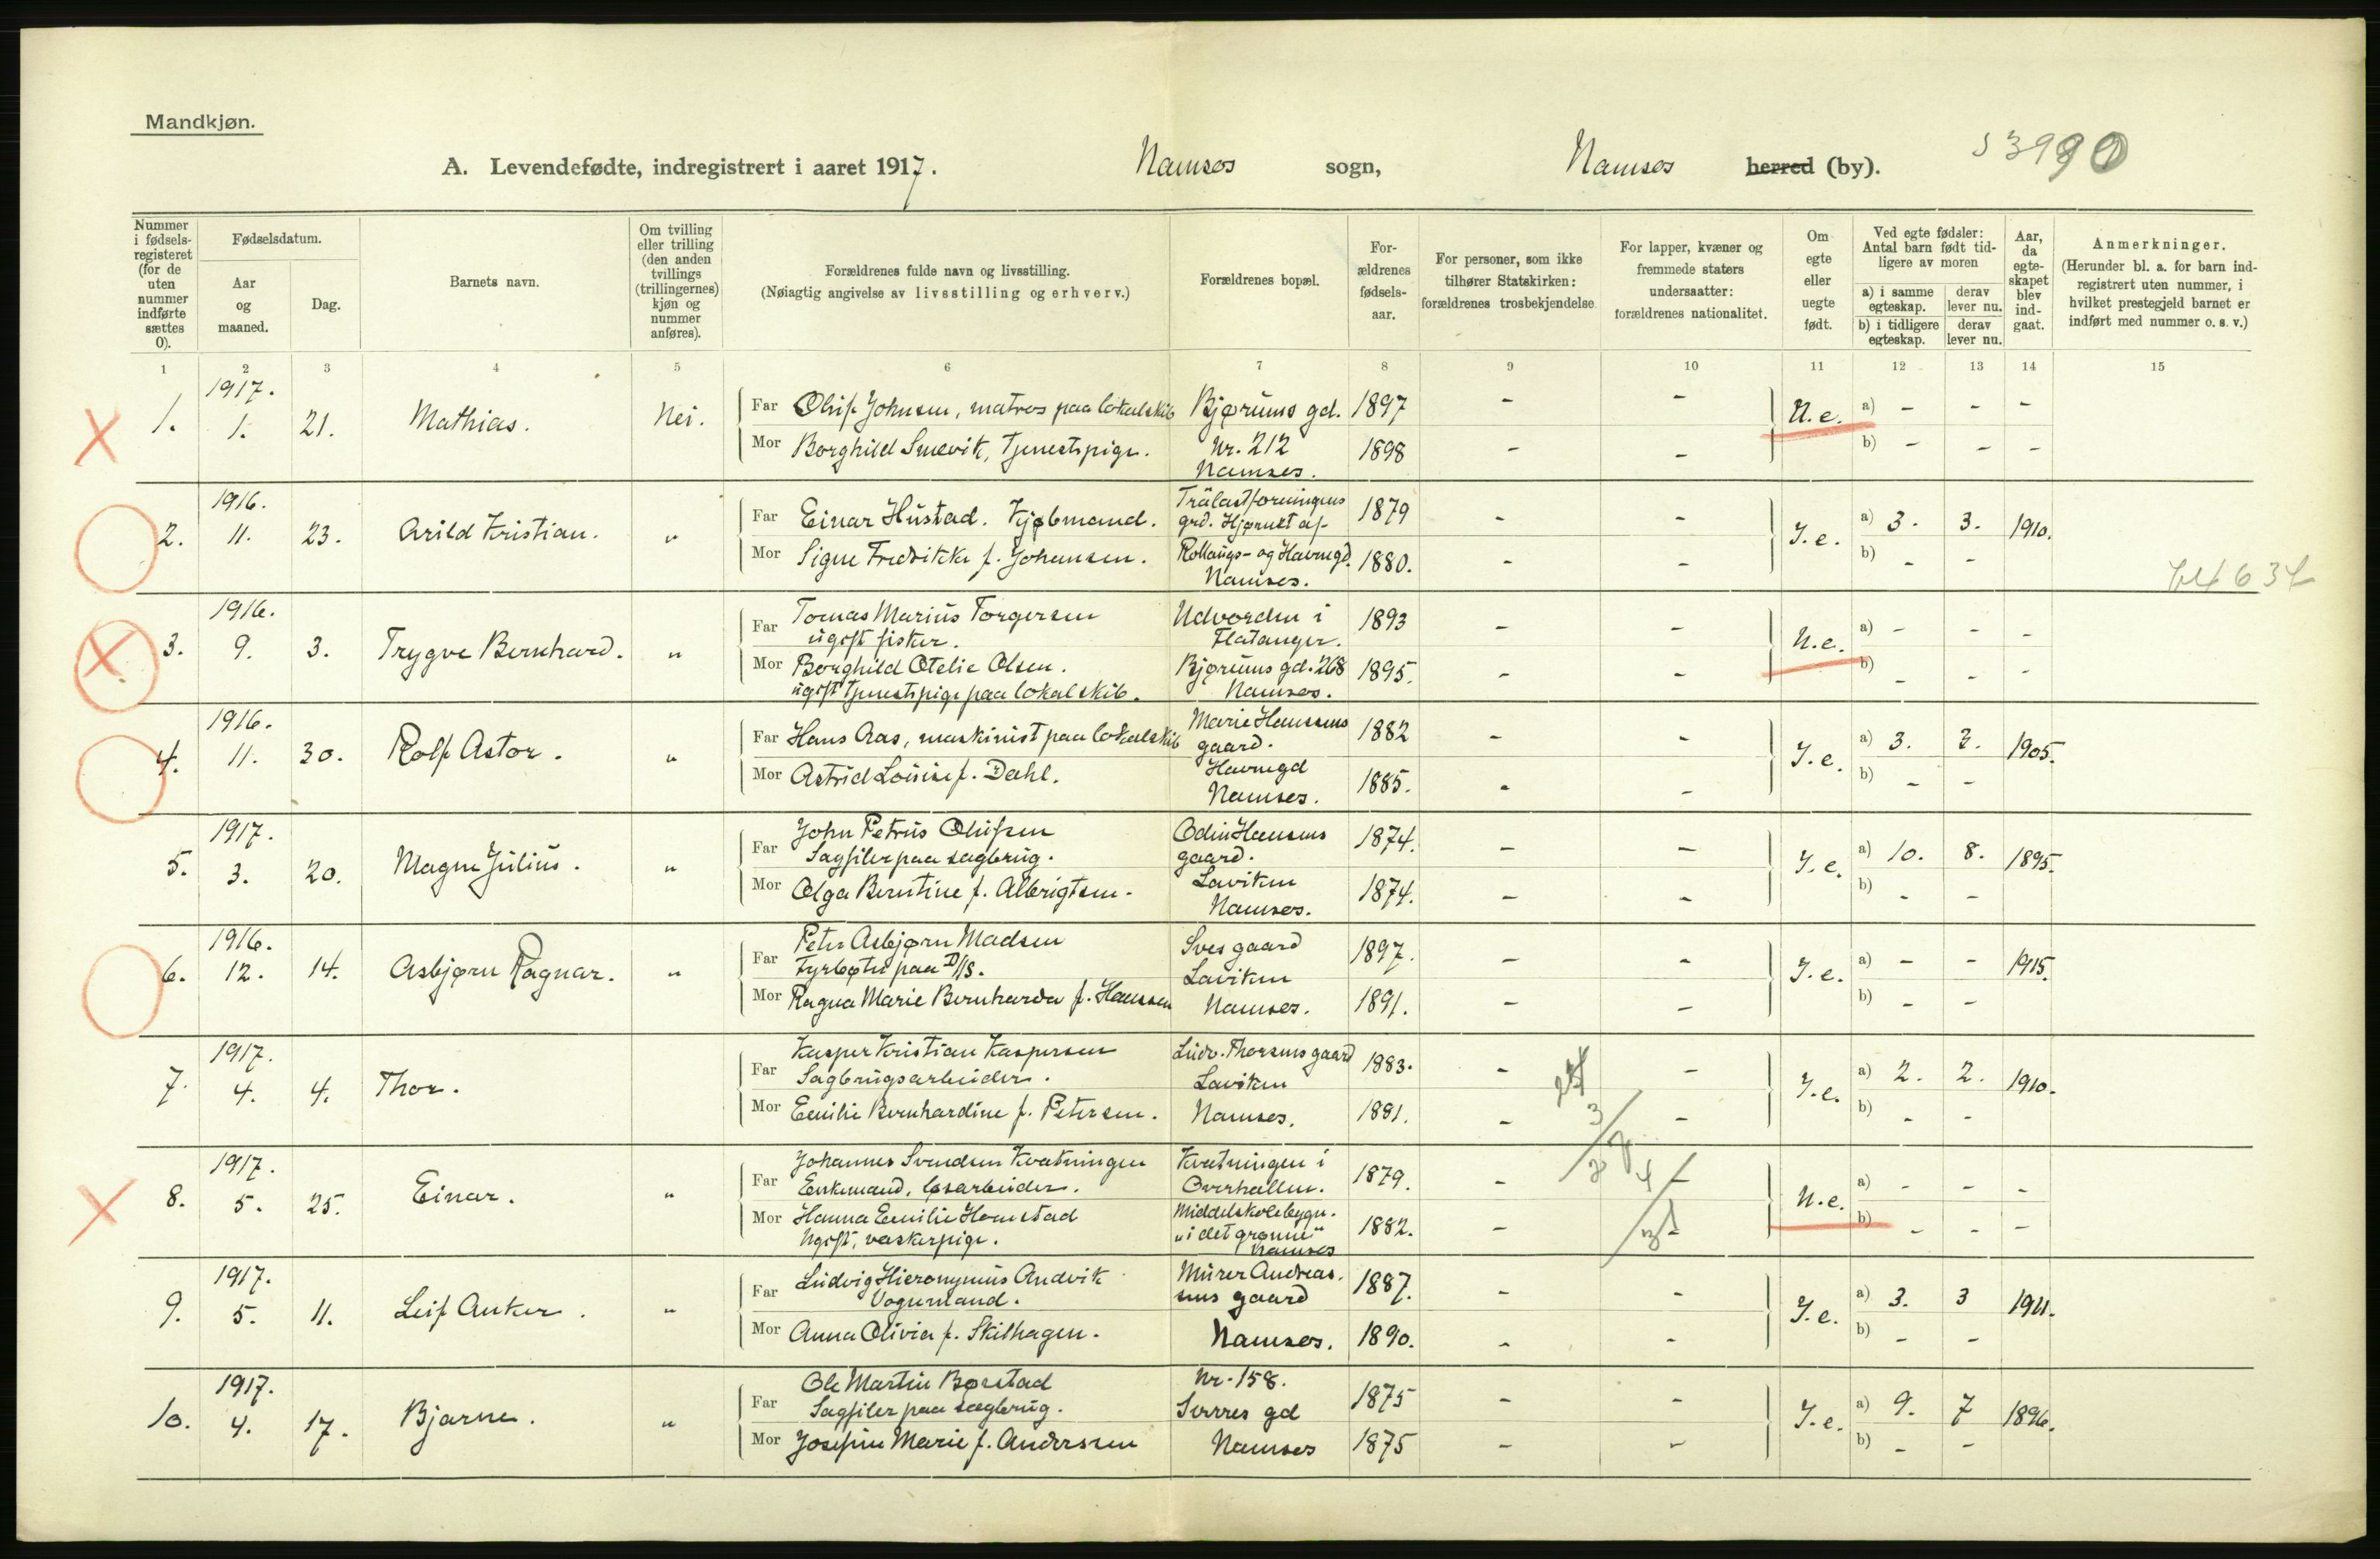 Mandkjøn.
A. Levendefødte, indregistrert i aaret 1917. Namsos sogn, Namsos herred (by).
Nummer i fødsels-registeret (for de uten nummer indførte sættes 0).
Fødselsdatum.
Aar og maaned.
Dag.
Barnets navn.
Om tvilling eller trilling (den anden tvillings (trillingernes) kjøn og nummer anføres).
Forældrenes fulde navn og livsstilling.
(Nøiagtig angivelse av livsstilling og erhverv.)
Forældrenes bopæl.
For-ældrenes fødsels-aar.
For personer, som ikke tilhører Statskirken: forældrenes trosbekjendelse
For lapper, kvæner og fremmede staters undersaatter: forældrenes nationalitet.
Om egte eller uegte født.
Ved egte fødsler: Antal barn født tid-ligere av moren
a) i samme egteskap. derav lever nu.
b) i tidligere egteskap. derav lever nu.
Aar, da egte-skapet blev ind-gaat.
Anmerkninger.
(Herunder bl. a. for barn ind-registrert uten nummer, i hvilket prestegjeld barnet er indført med nummer o. s. v.)
1 2 3 4 5 6 7 8 9 10 11 12 13 14 15
1917.
1. 1. 21. Mathias. Nei. Far Oluf Johnsen, matros paa lokalskib Bjørums gd. 1897 - - U.e. a) - - -
Mor Borghild Smevik, tjenestpige. Nr. 212 1898 - - b) - - -
Namsos.
1916.
2. 11. 23. Arild Kristian. " Far Einar Hustad. Kjøbmand. Trälastforeningens grd. Hjørnet af 1879 - - I.e. a) 3. 3. 1910.
Mor Signe Fredrikke f. Johansen. Rollaugs- og Havnegd. 1880. - - b) - -
Namsos.
1916.
3. 9. 3. Trygve Bernhard. " Far Tomas Marius Torgersen Udvorden i 1893 - - U.e. a) - - -
ugift fisker. Flatanger.
Mor Borghild Otelie Olsen. Bjørums gd. 268 1895. - - b) - - -
ugift tjenestpige paa lokalskib. Namsos.
1916.
4. 11. 30. Rolf Astor. " Far Hans Aas, maskinist paa lokalskib Marie Hanssens gaard. 1882 - - I.e. a) 3. 3. 1905.
Mor Astrid Louise f. Dahl. Havnegd 1885. - - b) - -
Namsos.
1917.
5. 3. 20. Magne Julius. " Far John Petrus Olufsen Odin Hansens 1874. - - I.e. a) 10. 8. 1895.
Sagfiler paa sagbrug. gaard.
Mor Olga Berntine f. Albrigtsen. Laviken 1874. - - b) - -
Namsos.
1916.
6. 12. 14. Asbjørn Ragnar. " Far Peter Asbjørn Madsen Sves gaard 1897. - - I.e. a) - - 1915.
Fyrbøter paa D/S. Laviken
Mor Ragna Marie Bernharda f. Hanssen Namsos. 1891. - - b) - -
1917.
7. 4. 4. Thor. " Far Kasper Kristian Kaspersen Ludv. Thorsens gaard 1883. - - I.e. a) 2. 2. 1910.
Sagbrugsarbeider. Laviken
Mor Emilie Bernhardine f. Petersen. Namsos. 1881. - - b) - -
1917.
8. 5. 25. Einar. " Far Johannes Svendsen Kvatningen Kvatningen i 1879. - U.e. a) - - -
Enkemand, løsarbeider. Overhallen.
Mor Hanna Emilie Homstad Middelskolebygn. 1882. - b) - - -
Ugift, vaskepige. "i det grønne"
Namsos
1917.
9. 5. 11. Leif Anker. " Far Ludvig Hieronymus Andvik Murer Andreas. 1887. - - I.e. a) 3. 3 1911.
Vognmand. sens gaard
Mor Anna Olivia f. Skilhagen. Namsos. 1890. - - b) - -
1917.
10. 4. 17. Bjarne. " Far Ole Martin Børstad Nr. 158. 1875 - - I.e. a) 9. 7 1896.
Sagfiler paa sagbrug. Sverres gd
Mor Josefine Marie f. Anderssen Namsos 1875 - - b) - -